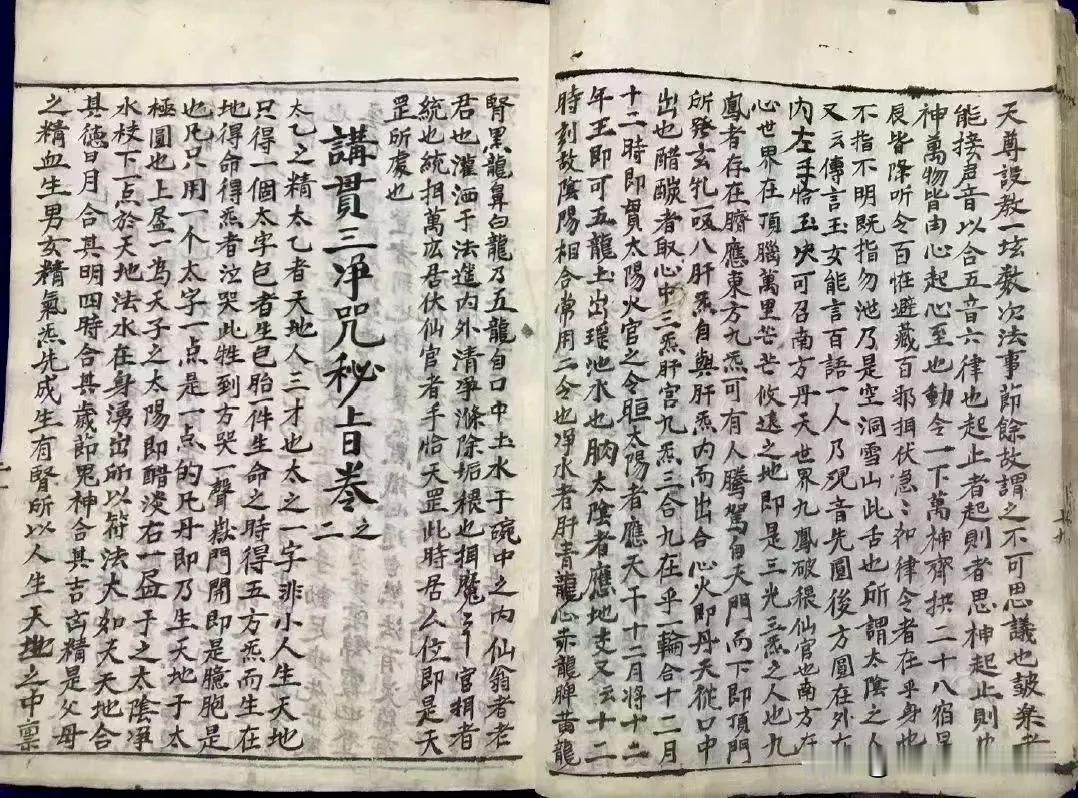 天尊設教一坛数次法事節餘故謂之不可思議也皷樂者
能接声音以合五音六律也起止者起則者思神起止則
神萬物皆由心起心至也動令一下萬神齊拱二十八宿星
辰皆降听令百怪避藏百邪拱伏急〻如律令者在乎身也
不指不明既指勿池乃是空洞雪山此舌也所謂太陰之人
又云傳言玉女能言百語一人乃現音先圓後方圓在外方
内左手恰玉决可召南方丹天世界九鳳破穢仙官也南方在
心世界在頂腦萬里芒芒攸遠之地即是三光三炁之人也九
鳳者存在臍應東方九炁可有人騰駕自天門而下即頂門
所發玄牝一吸八肝炁自與肝炁内而出合心火即丹天從口中
出也醋醶者取心中三炁肝宫九炁三合九在乎一輪合十二月
十二時即貫太陽火官之令晅太陽者應天干十二月將十二
年王即可五龍土出瑶池水也朒太陰者應地支又云十二
時刻故陰陽相合常用二令也凈水者肝青龍心赤龍脾黄龍
腎黑龍鼻白龍乃五龍自口中土水于碗中之内仙翁者老
君也灌洒于法筵内外清凈滌除垢穢也揖魔〻干官揖者
統也統揖萬庅居伏仙官者手恰天罡此時居厶位即是天
罡所處也
講貫三凈咒秘上日卷之二
太乙之精太乙者天地人三才也太之一字非小人生天地
只得一個太字包者生包胎一件生命之時得五方炁而生在
地得命得炁者泣哭此牲到方哭一聲獄門開即是臆胞是
也凡只用一个太字一点是一点的凡丹即乃生天地子太
極圖也上㿽一為天子之太陽即醋淡右一㿽于之太陰凈
水梭下一点於天地法水在身湧出所以符法大如夫天地合
其德日月合其明四時合其歲節鬼神合其吉凶精是父母
之精血生男女精氣炁先成生有腎所以人生天地之中禀